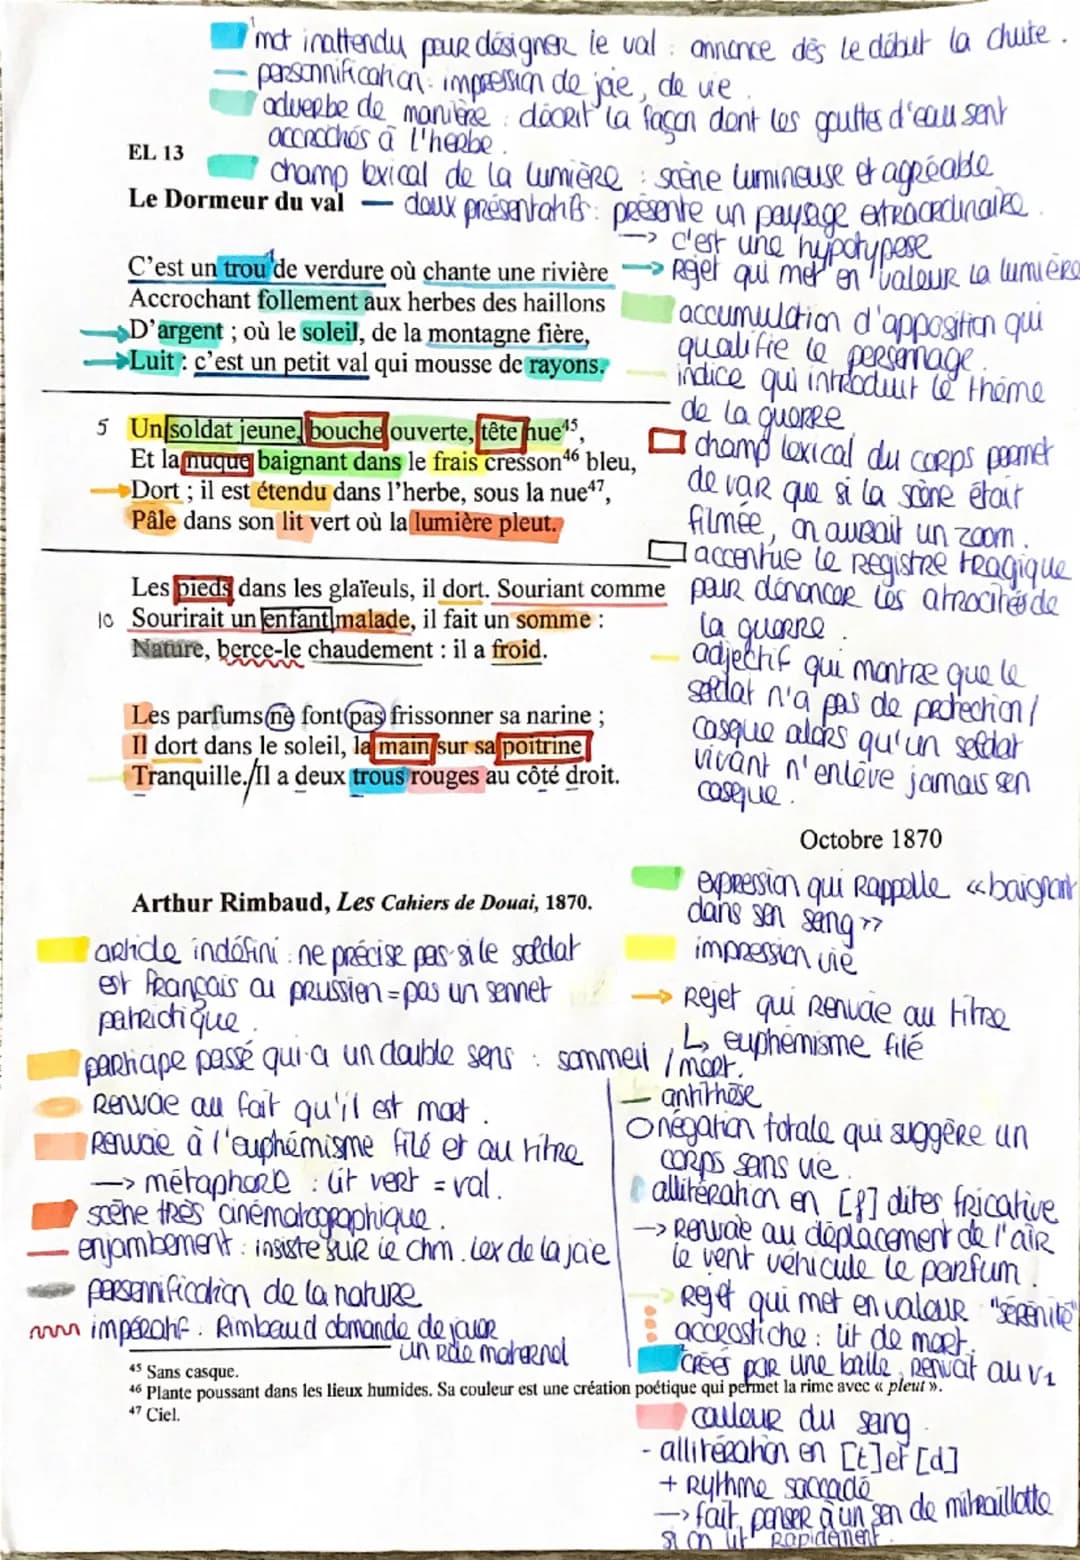 mot inattendu pour désigner le val : annonce dès le début la chute.
personnification : impression de joie, de vie.
adverbe de manière : décrit la façon dont les gouttes d'eau sont
accrochés à l'herbe.
EL 13
champ lexical de la lumière : scène lumineuse et agréable
Le Dormeur du val — deux présentatifs : présente un paysage extraordinaire.
→ c'est une hypotypese
C'est un trou de verdure où chante une rivière
→ Rejet qui met en valeur la lumière
Accrochant follement aux herbes des haillons
D'argent ; où le soleil, de la montagne fière,
Luit : c'est un petit val qui mousse de rayons.
accumulation d'apposition qui
qualifie le personnage.
indice qui introduit le thème
de la guerre
5 Un soldat jeune, bouche ouverte, tête nue45,
Et la nuque baignant dans le frais cresson46 bleu,
Dort ; il est étendu dans l'herbe, sous la nue47,
Pâle dans son lit vert où la lumière pleut.
champ lexical du corps permet
de voir que si la scène était
filmée, on aurait un zoom.
accentue le registre tragique
pour dénoncer les atrocités de
la guerre.
Les pieds dans les glaïeuls, il dort. Souriant comme
10 Sourirait un enfant malade, il fait un somme :
Nature, berce-le chaudement : il a froid.
adjectif qui montre que le
soldat n'a pas de protection /
casque alors qu'un soldat
vivant n'enlève jamais son
casque.
Les parfums ne font pas frissonner sa narine ;
Il dort dans le soleil, la main sur sa poitrine
Tranquille./Il a deux trous rouges au côté droit.
Octobre 1870
Arthur Rimbaud, Les Cahiers de Douai, 1870.
expression qui Rappelle «baignant
dans son sang»
impression vie
→ Rejet qui renvoie au titre
↳ euphémisme filé
article indéfini : ne précise pas si le soldat
est français ou prussien = pas un sonnet
patriotique.
participe passé qui a un double sens : sommeil / mort.
Renvoie au fait qu'il est mort.
Renvoie à l'euphémisme filé et au titre
→ métaphore : lit vert = val.
scène très cinématographique.
enjambement : insiste sur le chm. lex de la joie
personnification de la nature
impératif. Rimbaud demande de jouer
un rôle maternel
antithèse
négation totale qui suggère un
corps sans vie.
allitération en [f] dites fricative
→ Renvoie au déplacement de l'air
le vent véhicule le parfum.
Rejet qui met en valeur "sérénité"
accrostiche : lit de mort.
créés par une balle, renvoit au v1
45 Sans casque.
46 Plante poussant dans les lieux humides. Sa couleur est une création poétique qui permet la rime avec « pleut ».
47 Ciel.
couleur du sang.
- allitération en [t] et [d]
+ Rythme saccadé
→ fait penser à un son de mitraillette
si on lit rapidement.